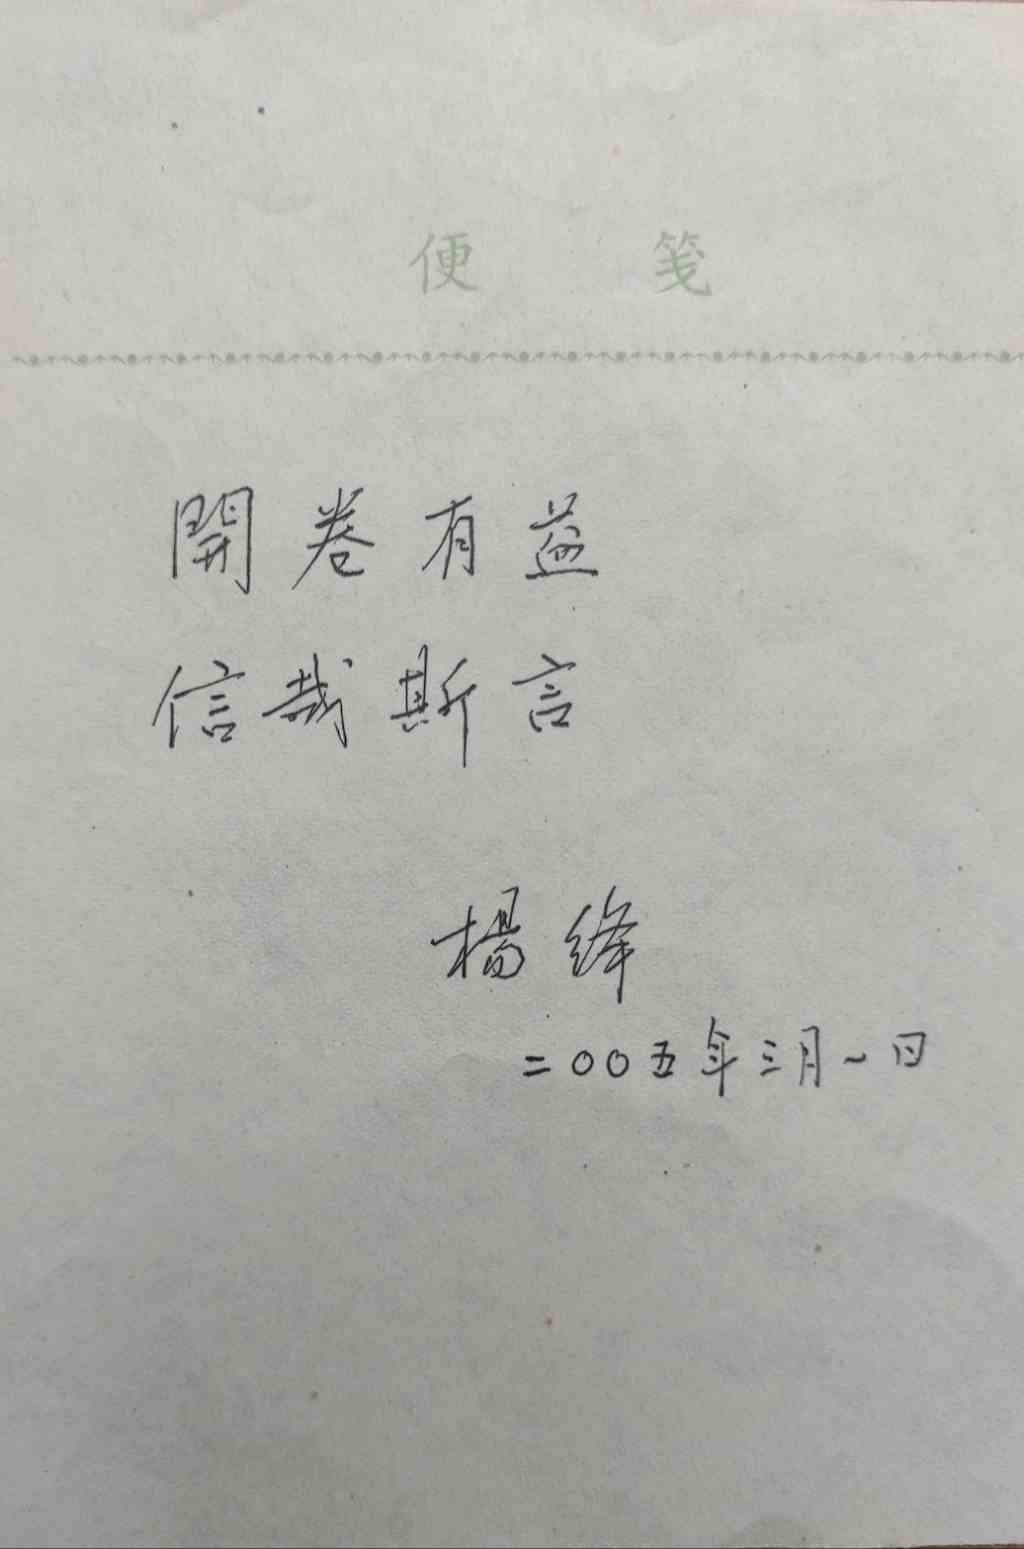 便 笺
開卷有益
信哉斯言
楊絳
二〇〇五年三月一日